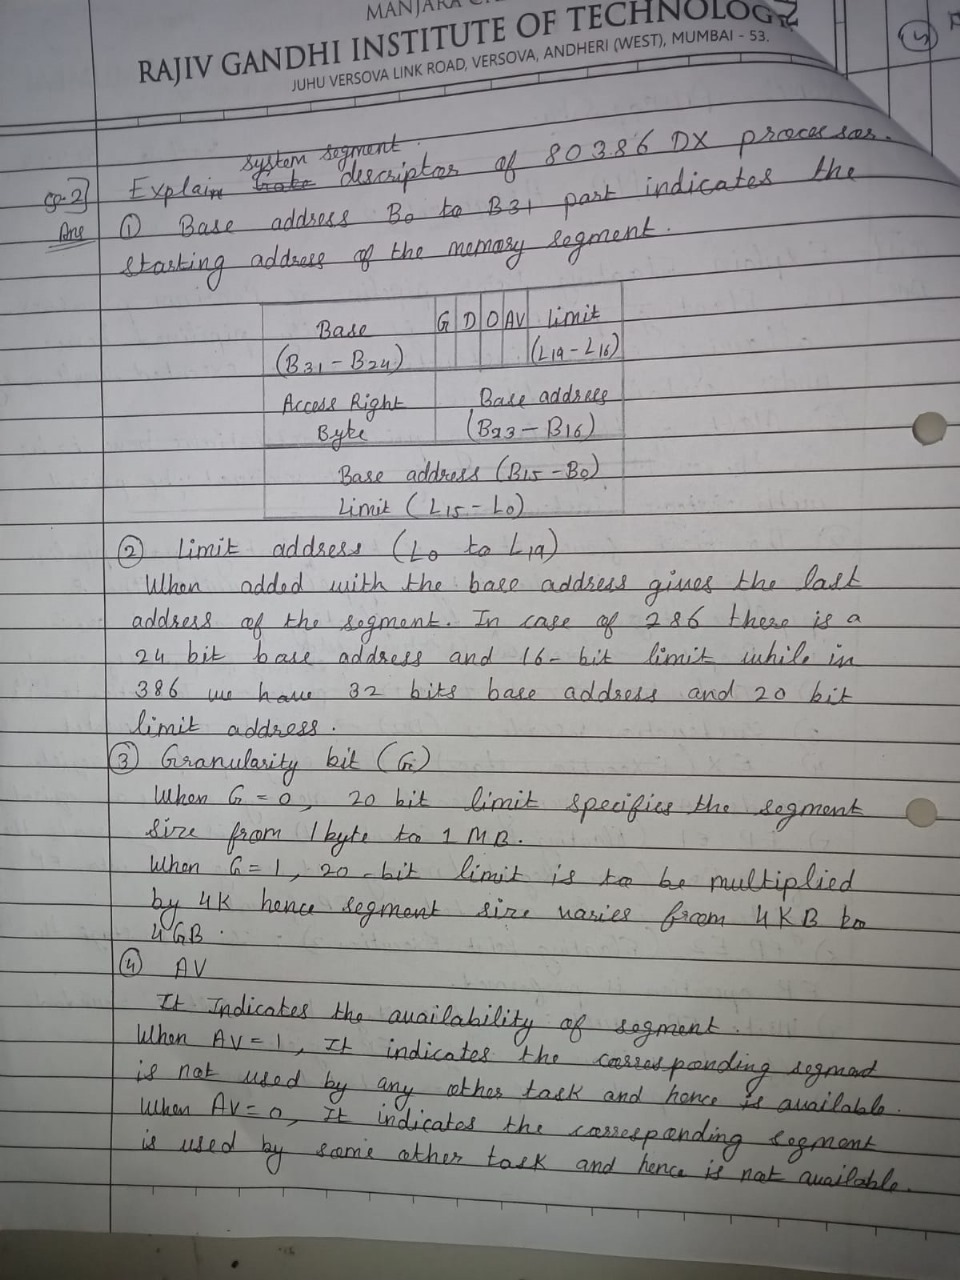 MANJARA
RAJIV GANDHI INSTITUTE OF TECHNOLOGY
JUHU VERSOVA LINK ROAD, VERSOVA, ANDHERI (WEST), MUMBAI - 53.
4
system segment
Q.2] Explain descriptor of 80386 DX processor.
Ans ① Base address B0 to B31 part indicates the
starting address of the memory segment.
Base G D O AV limit
(B31 - B24) (L19 - L16)
Access Right Base address
Byte (B23 - B16)
Base address (B15 - B0)
Limit (L15 - L0)
② Limit address (L0 to L19)
When added with the base address gives the last
address of the segment. In case of 286 there is a
24 bit base address and 16-bit limit while in
386 we have 32 bits base address and 20 bit
limit address.
③ Granularity bit (G)
When G = 0, 20 bit limit specifies the segment
size from 1 byte to 1 MB.
When G = 1, 20-bit limit is to be multiplied
by 4K hence segment size varies from 4KB to
4GB.
④ AV
It Indicates the availability of segment.
When AV = 1, It indicates the corresponding segment
is not used by any other task and hence is available.
When AV = 0, It indicates the corresponding segment
is used by some other task and hence is not available.